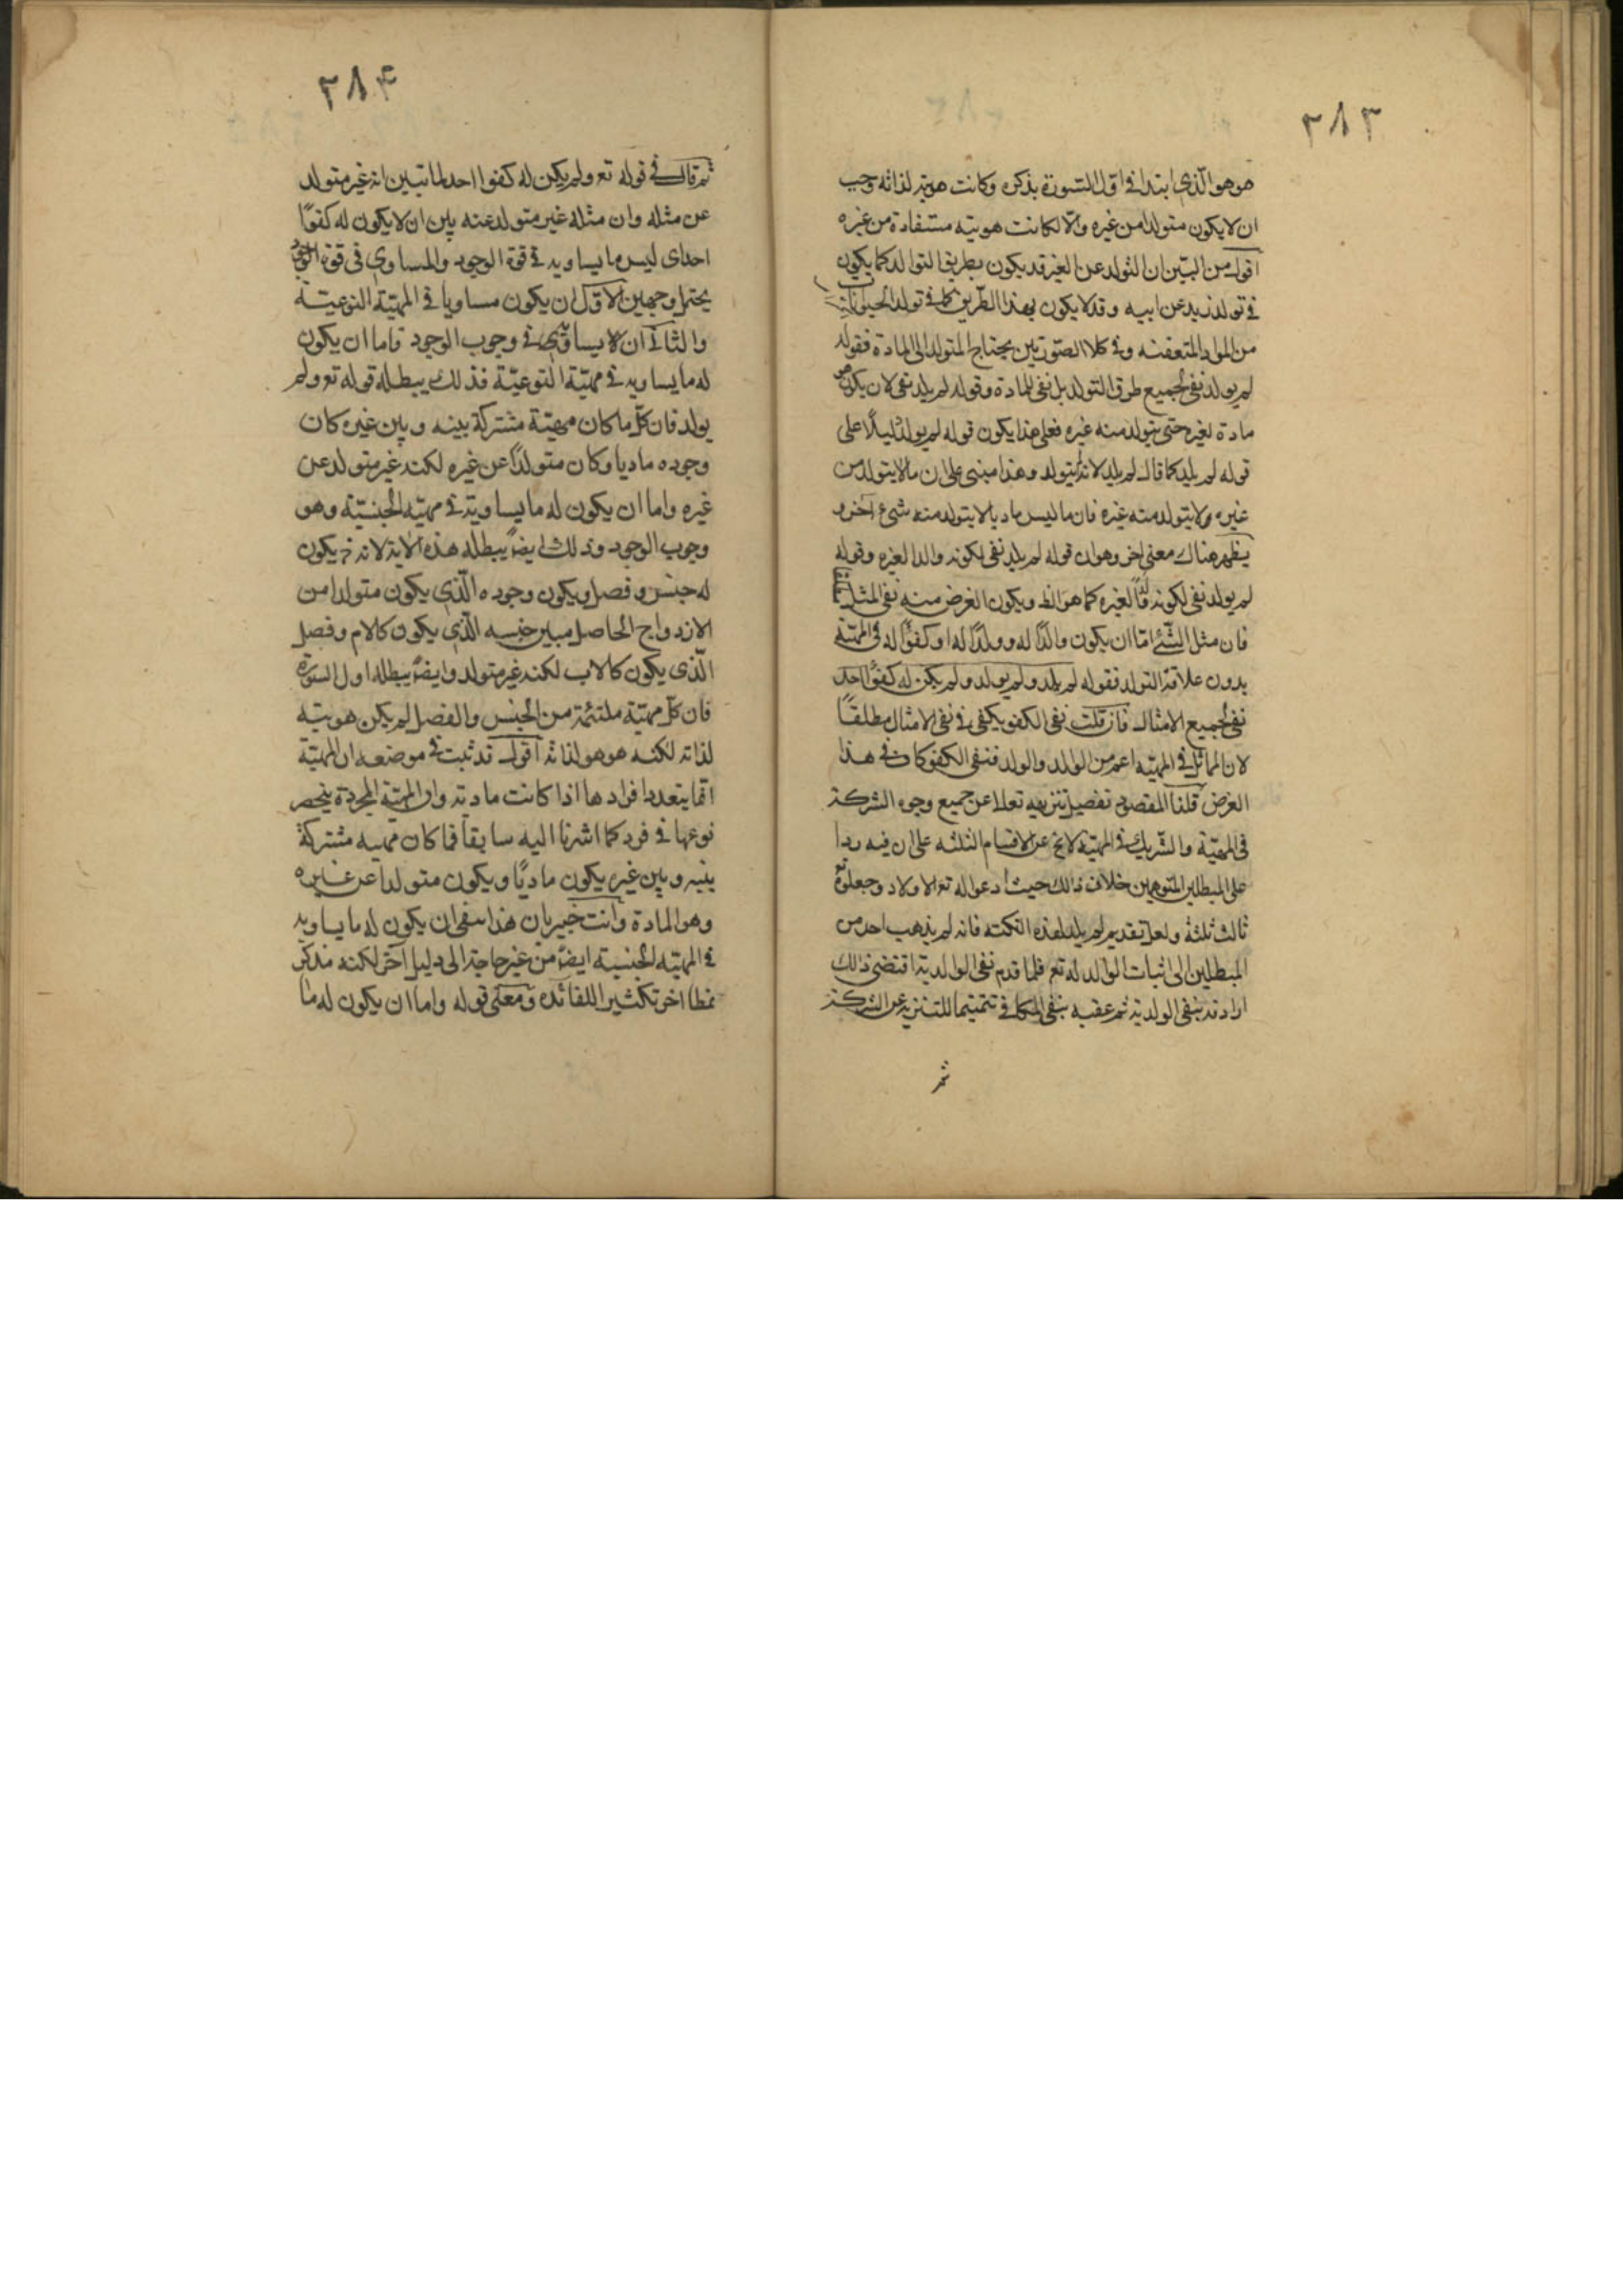 ٢٨٣
هو هو الذى ابتدا فى اول السورة بذكره وكانت هويته لذاته وجب
ان لا يكون متولدا من غيره والا لكانت هويته مستفادة من غيره
اقول من البين ان التولد عن الغير قد يكون بطريق التوالد كما يكون
فى تولد زيد عن ابيه وقد لا يكون بهذا الطريق كما فى تولد الحيوانات
من المواد المتعفنه وفى كلا الصورتين يحتاج المتولد الى المادة فقوله
لم يولد نفى لجميع طرق التولد بل نفى للمادة وقوله لم يلد نفى لان يكون هو
مادة لغيره حتى يتولد منه غيره فعلى هذا يكون قوله لم يولد دليلا على
قوله لم يلد كما قال لم يلد لانه لم يتولد وهذا مبنى على ان ما لا يتولد من
غيره ولا يتولد منه غيره فان ما ليس ماديا لا يتولد منه شىء آخر و
يظهر هناك معنى اخر وهو ان قوله لم يلد نفى لكونه والدا لغيره وقوله
لم يولد نفى لكونه ولدا لغيره كما هو الظ ويكون الغرض منه نفى المثل
فان مثل الشئ اما ان يكون والدا له وولدا له او كفوا له فى المهيّة
بدون علاقة التولد فقوله لم يلد ولم يولد ولم يكن له كفوا احد
نفى لجميع الامثال فان قلت نفى الكفو يكفى فى نفى الامثال مطلقا
لان المماثل فى المهيّه اعم من الوالد والولد فنفى الكفو كان فى هذا
الغرض قلنا المقصود تفصيل تنزيهه تعالى عن جميع وجوه الشركة
فى المهيّة والشريك فى المهيّة لا يخ عن الاقسام الثلثه على ان فيه ردا
على المبطلين المتوهمين خلاف ذالك حيث ادعوا له تع الاولاد وجعلوه
ثالث ثلثة ولعل تقديم لم يلد لهذه النكته فانه لم يذهب احد من
المبطلين الى اثبات الوالد له تع فلما قدم نفى الوالدية اقتضى ذالك
ارادته بنفى الولدية ثم عقبه بنفى المكافى تتميما للتنزيه عن الشركة
ثم
٢٨۴
ثم قال فى قوله تع ولم يكن له كفوا احد لما تبين انه غير متولد
عن مثله وان مثله غير متولد عنه بين ان لا يكون له كفوًا
احد اى ليس ما يساويه فى قوة الوجود والمساوى فى قوة الوجود
يحتمل وجهين الاول ان يكون مساويا فى المهيّة النوعيّة
والثانى ان لا يساوى فى وجوب الوجود فاما ان يكون
له ما يساويه فى مهيّة النوعيّة فذلك يبطله قوله تع ولم
يولد فان كل ما كان مهيّته مشتركة بينه وبين غيره كان
وجوده ماديا وكان متولدًا عن غيره لكنه غير متولد عن
غيره واما ان يكون له ما يساويه فى مهيّه الجنسيّة وهو
وجوب الوجود وذلك ايضاً يبطله هذه الاية لانه ح يكون
له جنس وفصل ويكون وجوده الّذى يكون متولدا من
الازدواج الحاصل مبين جنسه الّذى يكون كالام وفصل
الّذى يكون كالاب لكنه غير متولد وايضاً يبطله اول السورة
فان كل مهيّة ملتئمة من الجنس والفصل لم يكن هويته
لذاته لكنه هو هو لذاته اقول قد ثبت فى موضعه ان المهيّة
انما يتعدد افرادها اذا كانت مادية وان المهيّة المجردة ينحصر
نوعها فى فرد كما اشرنا اليه سابقا فما كان مهيه مشتركة
بينه وبين غيره يكون ماديًا ويكون متولدا عن غيره
وهو المادة وانت خبير بان هذا ينفى ان يكون له ما يساويه
فى المهيّه الجنسية ايضاً من غير حاجة الى دليل آخر لكنه ذكر
نمطا اخر تكثيرا للفائده ومعنى قوله واما ان يكون له ما